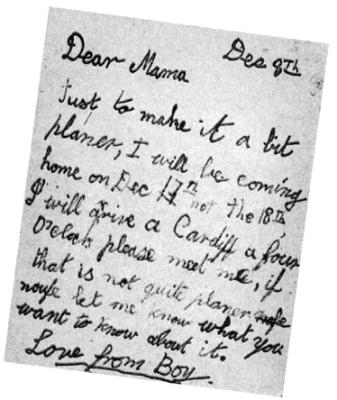 Dec 8th
Dear Mama
Just to make it a bit
planer, I will be coming
home on Dec 17th not the 18th
I will arive a Cardiff a four
O'cloch please meet me, if
that is not quite planer
noyle let me know what you
want to know about it.
Love from Boy.